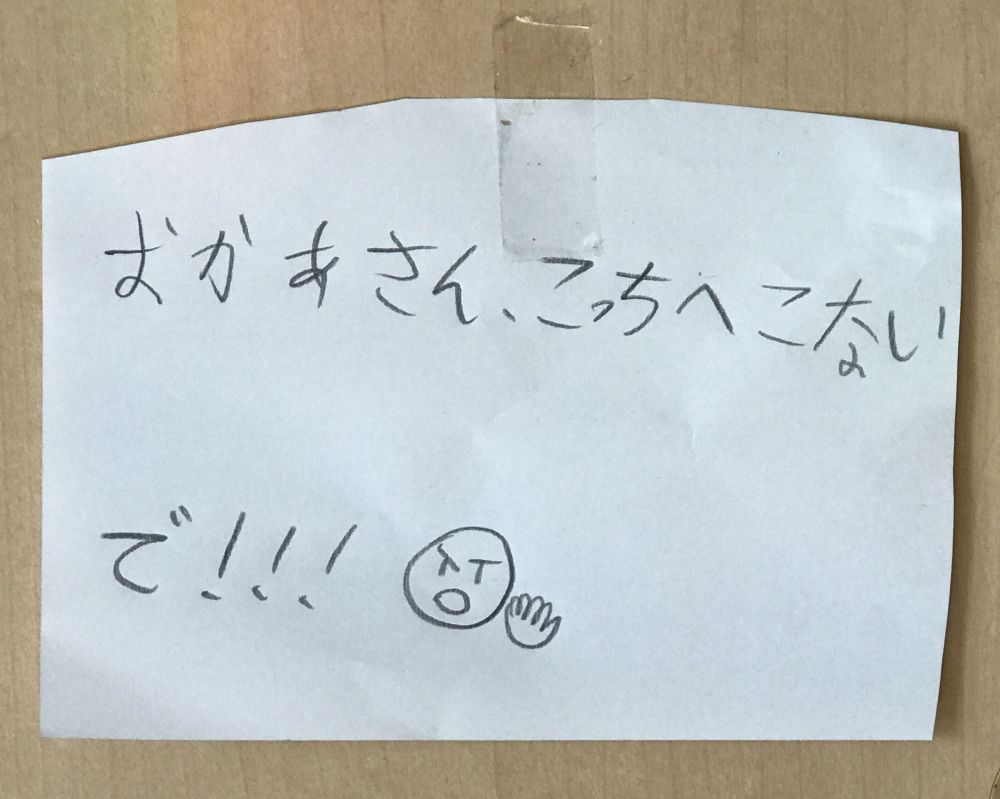 おかあさん、こっちへこない
で!!!